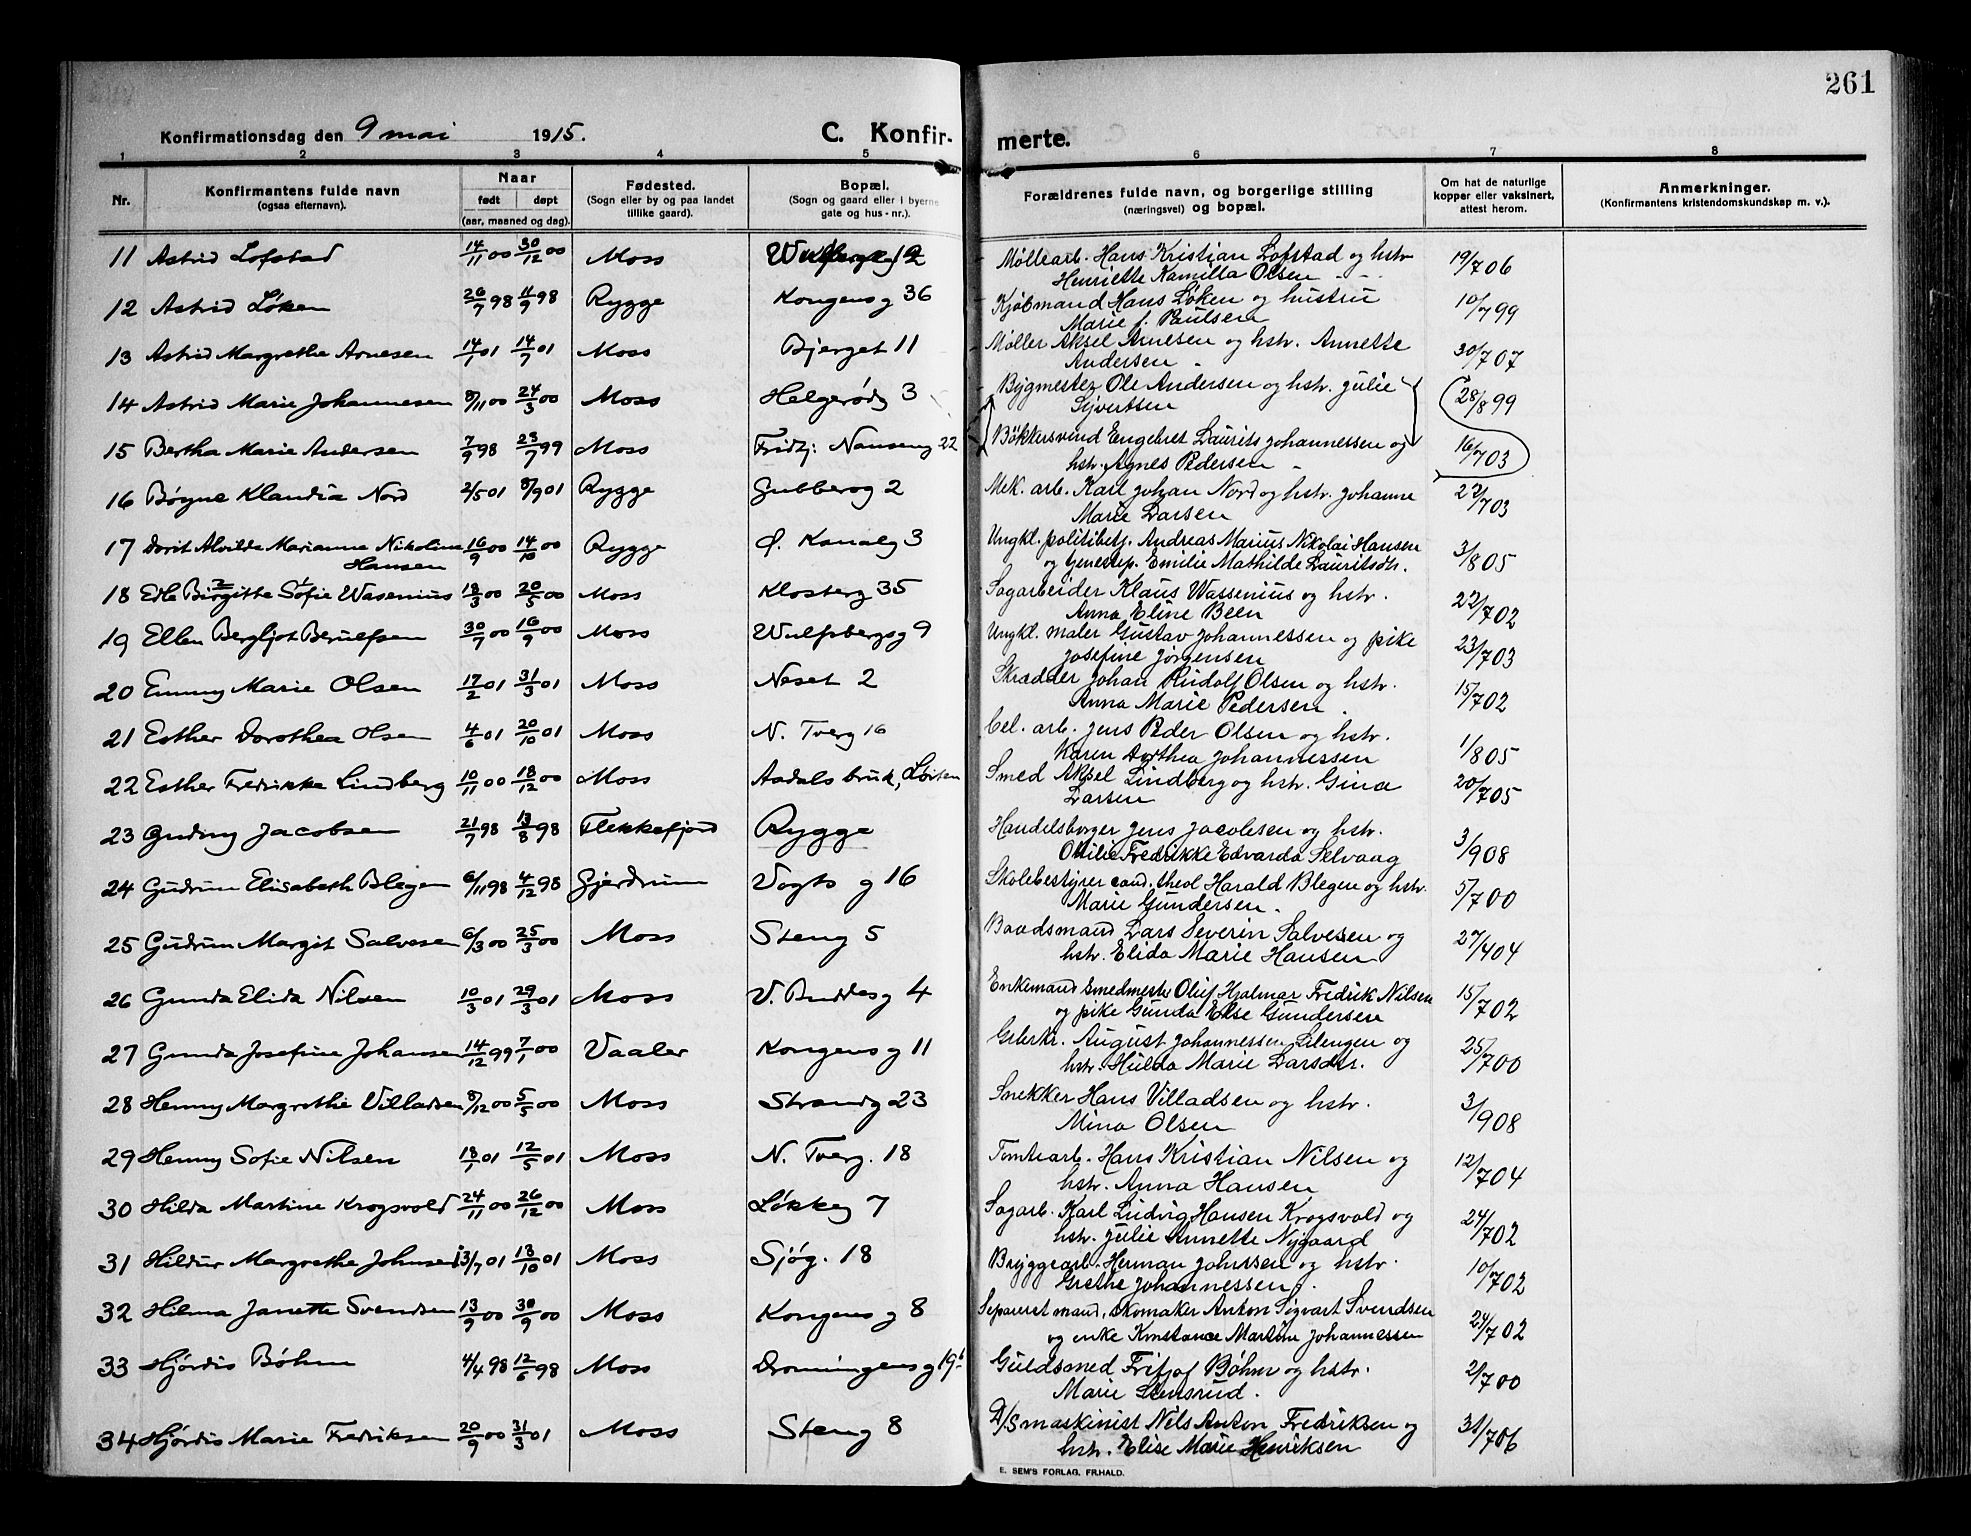 261
Konfirmationsdag den 9 mai 1915. C. Konfir- merte.
1 2 3 4 5 6 7 8
Nr. Konfirmantens fulde navn (ogsaa efternavn). Naar født døpt (aar, maaned og dag). Fødested. (Sogn eller by og paa landet tillike gaard). Bopæl. (Sogn og gaard eller i byerne gate og hus-nr.). Forældrenes fulde navn, og borgerlige stilling (næringsvei) og bopæl. Om hat de naturlige kopper eller vaksinert, attest herom. Anmerkninger. (Konfirmantens kristendomskundskap m. v.).
11 Astrid Lofstad 14/11 00 30/12 00 Moss Møllearb. Hans Kristian Lofstad og hstr 19/7 06
Henriette Kamilla Olsen
12 Astrid Løken 26/7 98 11/9 98 Rygge Kongens g 36 Kjøbmand Hans Løken og hustru 10/7 99
Marie f. Paulsen
13 Astrid Margrethe Arnesen 14/7 01 14/7 01 Moss Bjerget 11 Møller Aksel Arnesen og hstr. Annette 30/7 07
Andersen
14 Astrid Marie Johannesen 8/11 00 24/3 00 Moss Helgerødg 3 Bygmester Ole Andersen og hstr. Julie 28/8 99
Sivertsen
15 Bertha Marie Andersen 7/9 98 23/7 99 Moss Fridtj: Nanseng 22 Bøkkersvend Engebret Laurits Johannessen og 16/7 03
hstr. Agnes Pedersen
16 Bøyne Klaudia Nord 2/5 01 8/9 01 Rygge Gubberog 2 Mek. arb. Karl Johan Nord og hstr. Johanne 22/7 03
Marie Larsen
17 Dorit Alvilde Marianne Nikoline 16/9 00 14/10 00 Rygge Ø. Kanalg 3 Ungkl. politibetj. Andreas Marius Nikolai Hansen 3/8 05
Hansen og tjenestep. Emilie Mathilde Lauritsdtr.
18 Edle Birgitte Sofie Wasenius 18/3 00 20/5 00 Moss Klosterg 35 Sagarbeider Klaus Wassenius og hstr. 22/7 02
Anna Eline Been
19 Ellen Bergljot Berulfsen 30/7 00 16/9 00 Moss Wulfsbergsg 9 Ungkl. maler Gustav Johannessen og pike 23/7 03
Josefine Jørgensen
20 Emmy Marie Olsen 17/2 01 31/3 01 Moss Neset 2 Skrædder Johan Rudolf Olsen og hstr. 15/7 02
Anna Marie Pedersen
21 Esther Dorothea Olsen 4/6 01 20/10 01 Moss N. Tverg 16 Cel. arb. Jens Peder Olsen og hstr. 1/8 05
Karen Dorthea Johannessen
22 Esther Fredrikke Lindberg 10/11 00 18/12 00 Moss Aadals bruk, Løiten Smed Aksel Lindberg og hstr. Gina 20/7 05
Larsen
23 Gudny Jacobsen 21/7 98 13/8 98 Flekkefjord Rygge Handelsborger Jens Jacobsen og hstr. 3/9 08
Otilie Fredrikke Edvarda Selvaag
24 Gudrun Elisabeth Blegen 6/11 98 4/12 98 Gjerdrum Vogts g 16 Skolebestyrer cand. theol Harald Blegen og hstr. 5/7 00
Marie Gundersen
25 Gudrun Margit Salvesen 6/3 00 25/3 00 Moss Steng 5 Baadsmand Lars Severin Salvesen og 27/4 04
hstr. Elida Marie Hansen
26 Gunda Elida Nilsen 10/3 01 29/3 01 Moss V. Buddesg 4 Enkemand Smedmester Oluf Hjalmar Fredrik Nilsen 15/7 02
og pike Gunda Else Gundersen
27 Gunda Josefine Johansen 14/12 99 7/1 00 Vaaler Kongens g 11 Grbrkr. August Johannessen Lilengen og 25/7 00
hstr. Hulda Marie Larsdtr.
28 Henny Margrethe Villadsen 8/12 00 5/5 00 Moss Strandg 23 Snekker Hans Villadsen og hstr. 3/9 08
Mina Olsen
29 Henny Sofie Nilsen 18/1 01 12/5 01 Moss N. Tverg. 18 Tomtearb. Hans Kristian Nilsen og 12/7 04
hstr. Anna Hansen
30 Hilda Martine Krogsvold 24/11 00 26/12 00 Moss Løkkeg 7 Sagarb. Karl Ludvig Hansen Krogsvold og 24/7 02
hstr. Julie Annette Nygaard
31 Hildur Margrethe Johnsen 13/7 01 13/10 01 Moss Sjøg. 18 Bryggearb. Herman Johnsen og hstr. 10/7 02
Grethe Johannessen
32 Hilma Janette Svendsen 13/9 00 30/9 00 Moss Kongens g 8 Separeret mand, skomaker Anton Sigvart Svendsen 24/7 02
og enke Konstance Martine Johannessen
33 Hjørdis Bøhm 4/4 98 12/6 98 Moss Dronningens g 19b Guldsmed Fritjof Bøhm og hstr. 2/7 00
Marie Stensrud.
34 Hjørdis Marie Fredriksen 20/9 00 31/3 01 Moss Steng 8 D/S maskinist Nils Anton Fredriksen og 31/7 06
hstr. Elise Marie Henriksen
E. SEM'S FORLAG, FR.HALD.